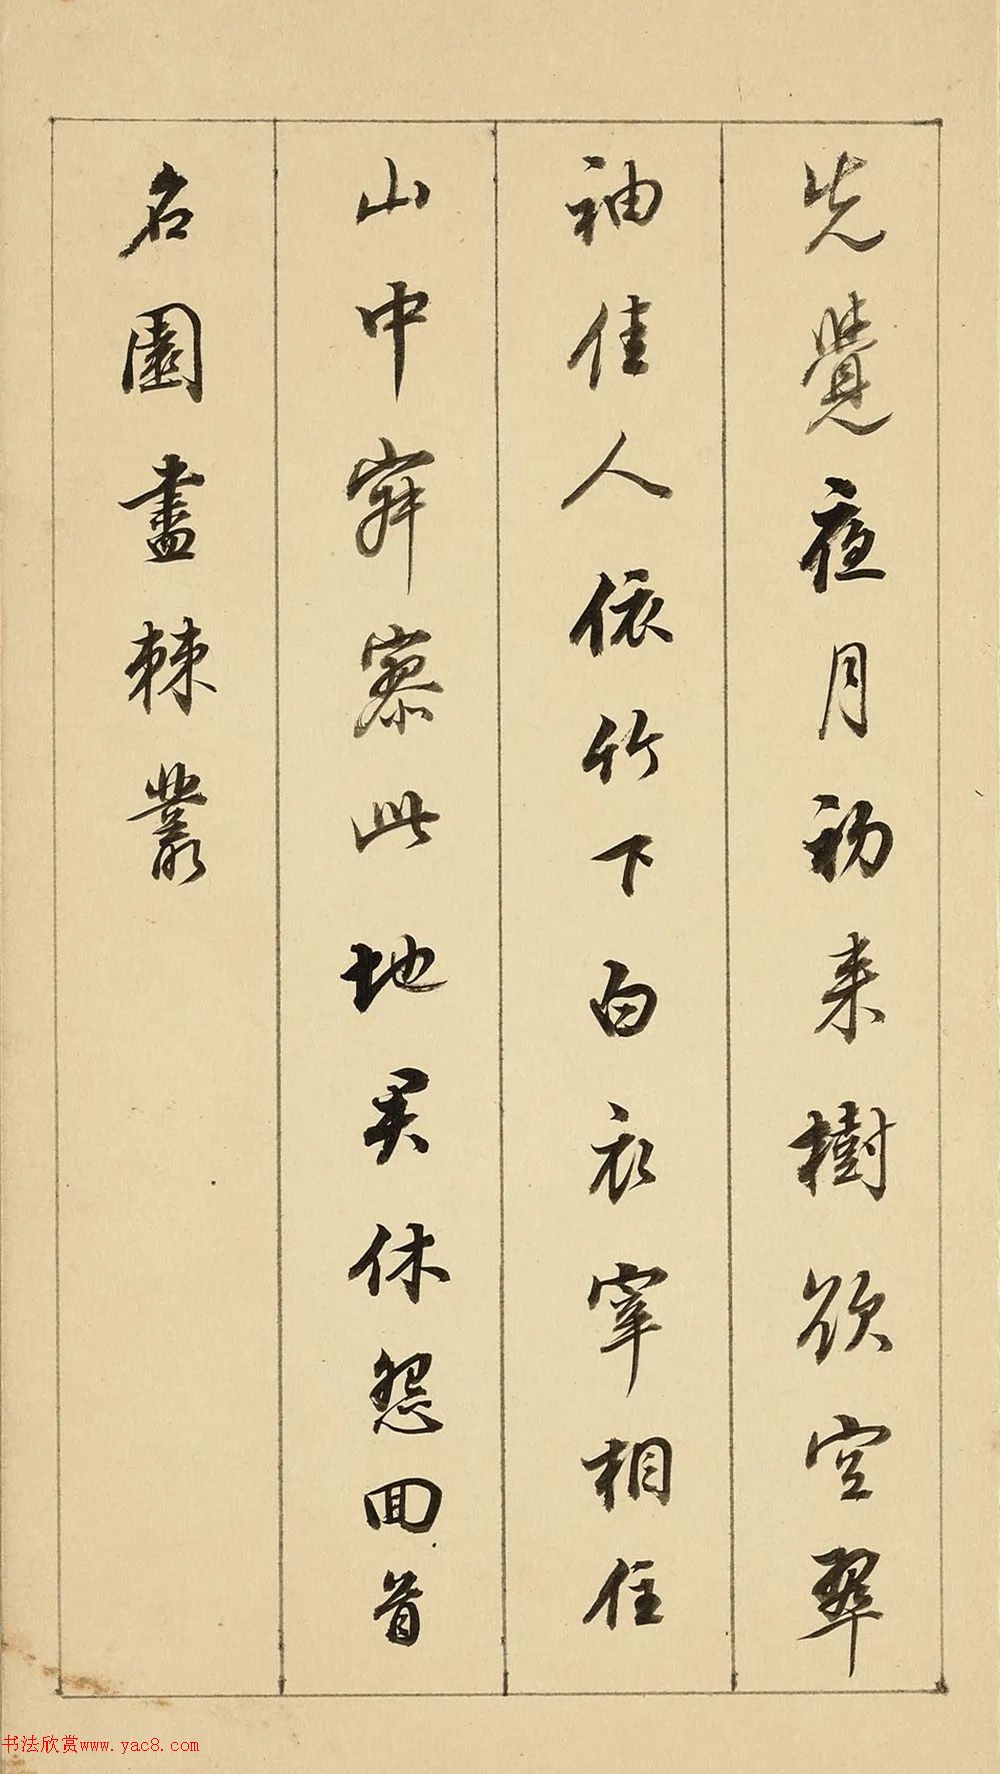 先覺夜月初来樹欲空翠
袖佳人依竹下白衣宰相住
山中寂寥此地君休怨回首
名園盡棘叢
书法欣赏www.yac8.com